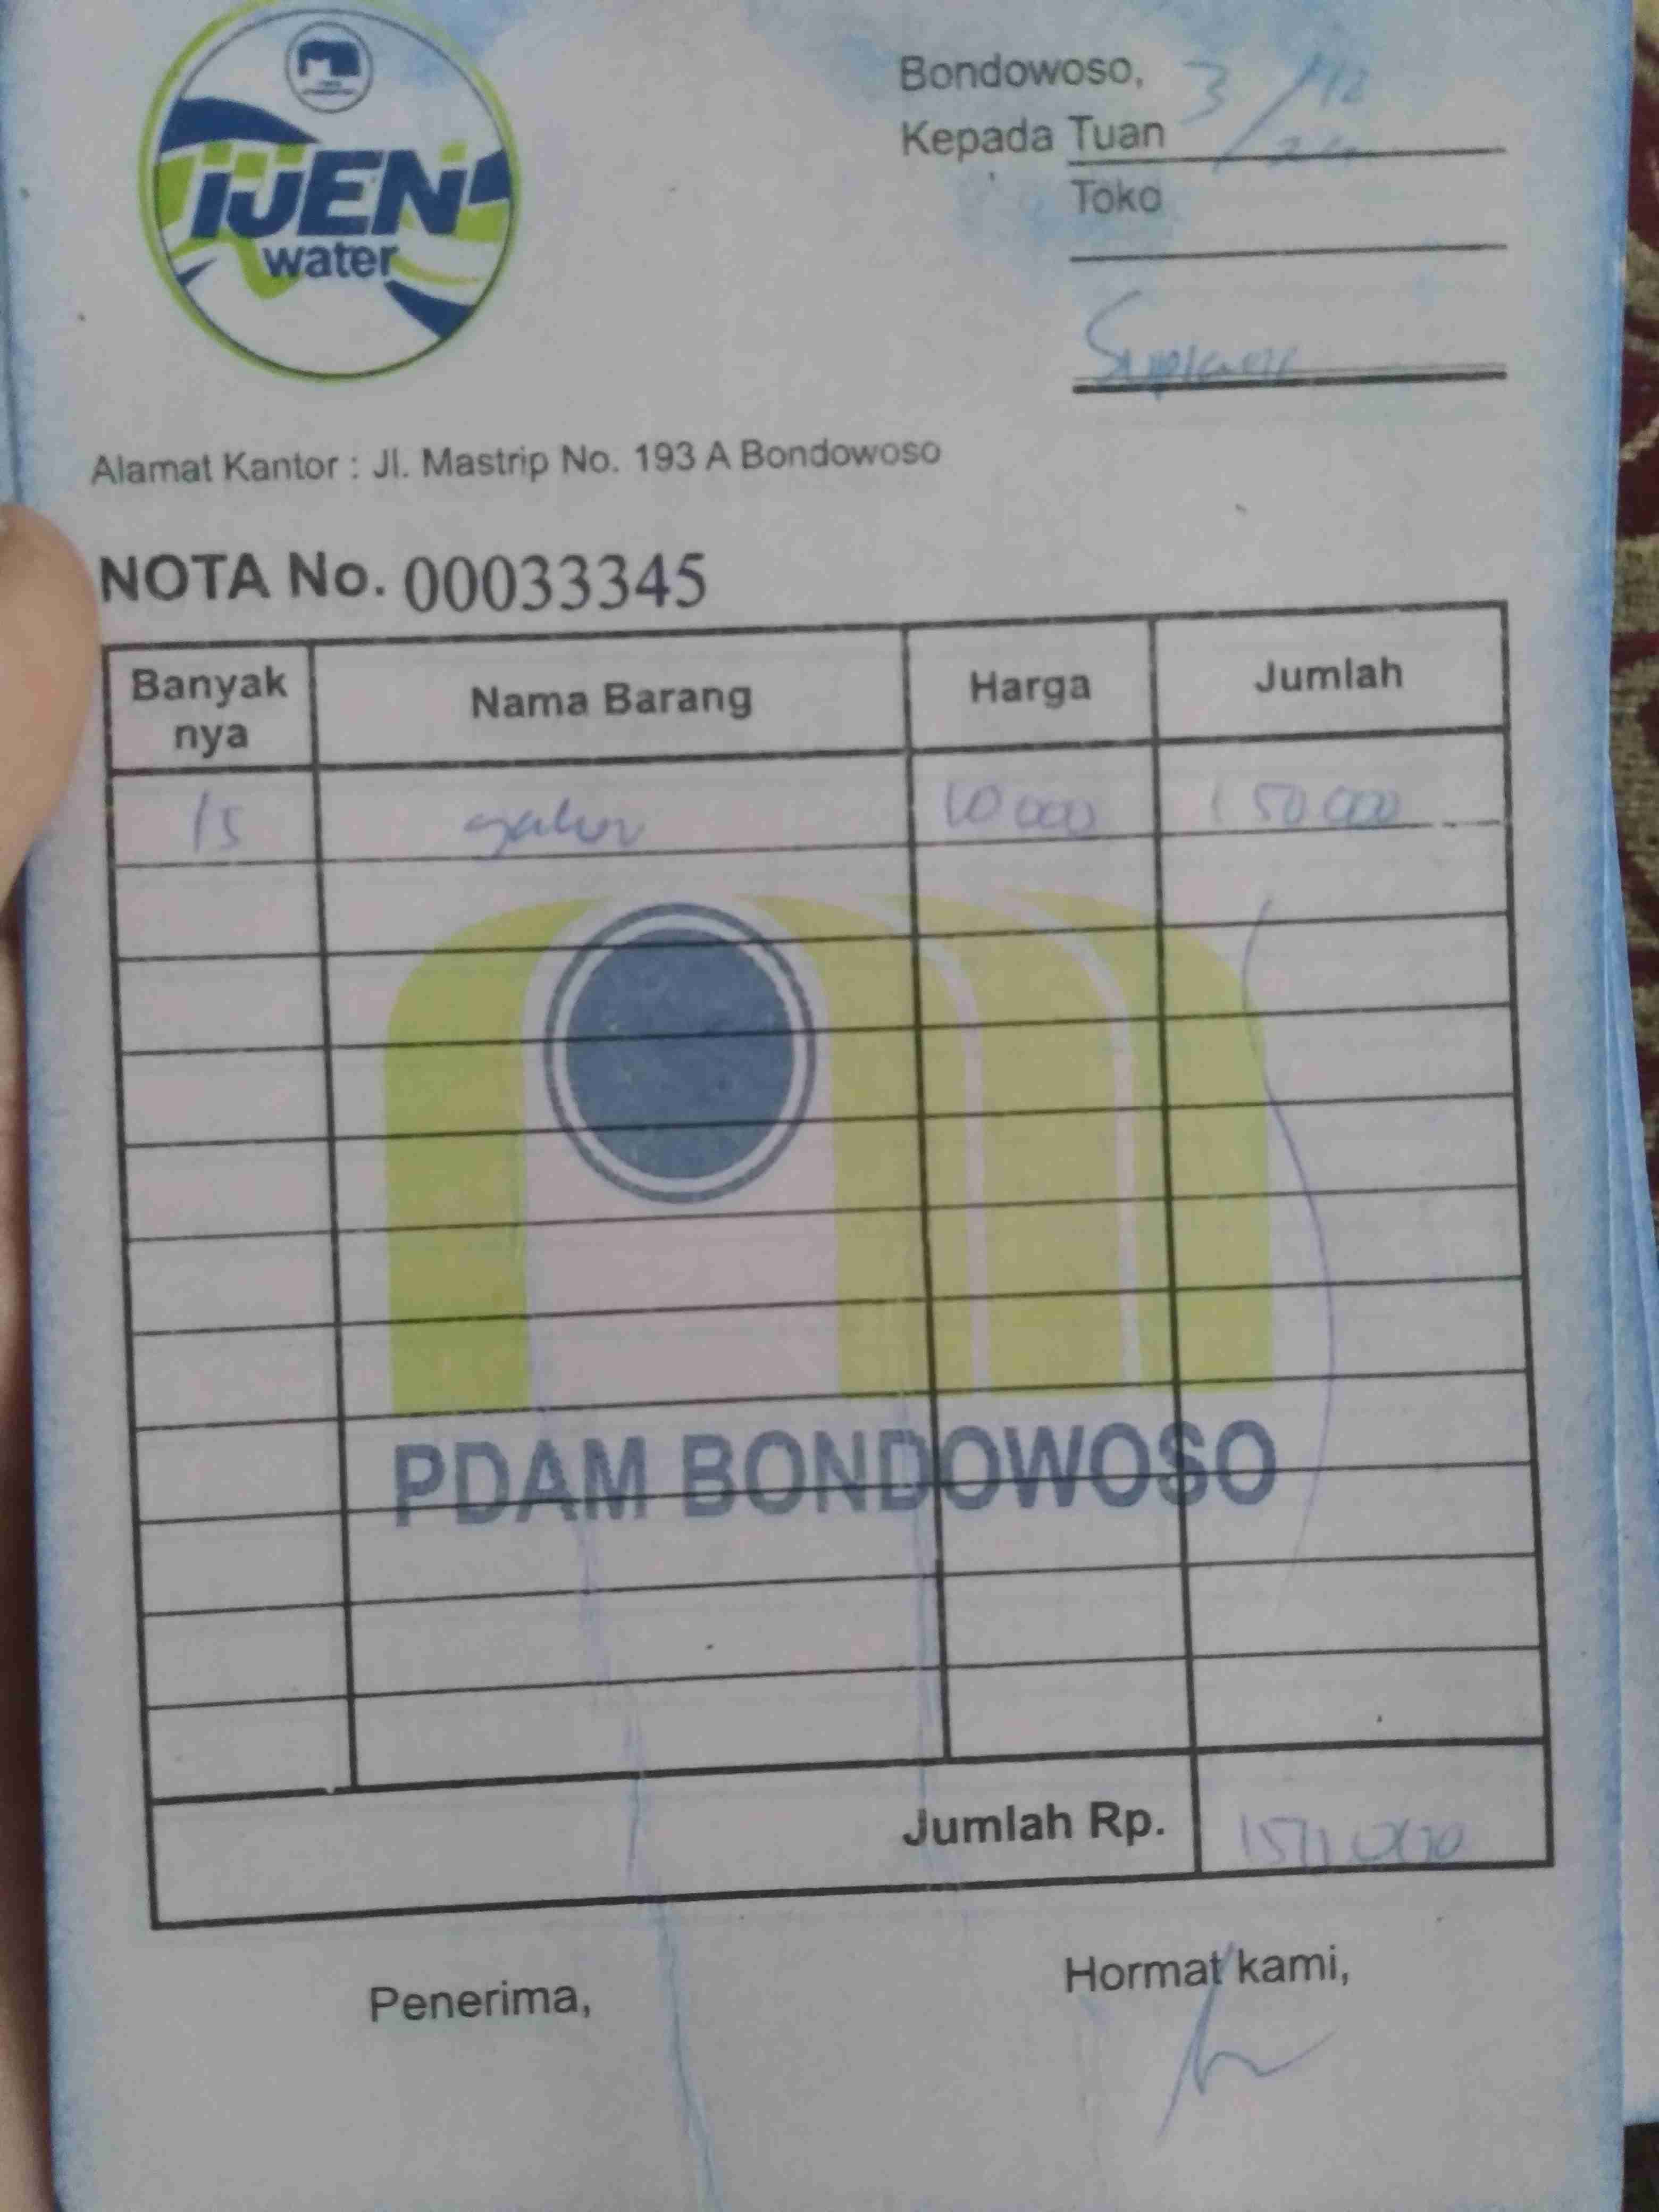 iJEN
water
Bondowoso, 3/12
Kepada Tuan
Toko
Alamat Kantor : Jl. Mastrip No. 193 A Bondowoso
NOTA No. 00033345
Banyak nya Nama Barang Harga Jumlah
15 galon 10 000 150 000
PDAM BONDOWOSO
Jumlah Rp. 150.000
Penerima, Hormat kami,